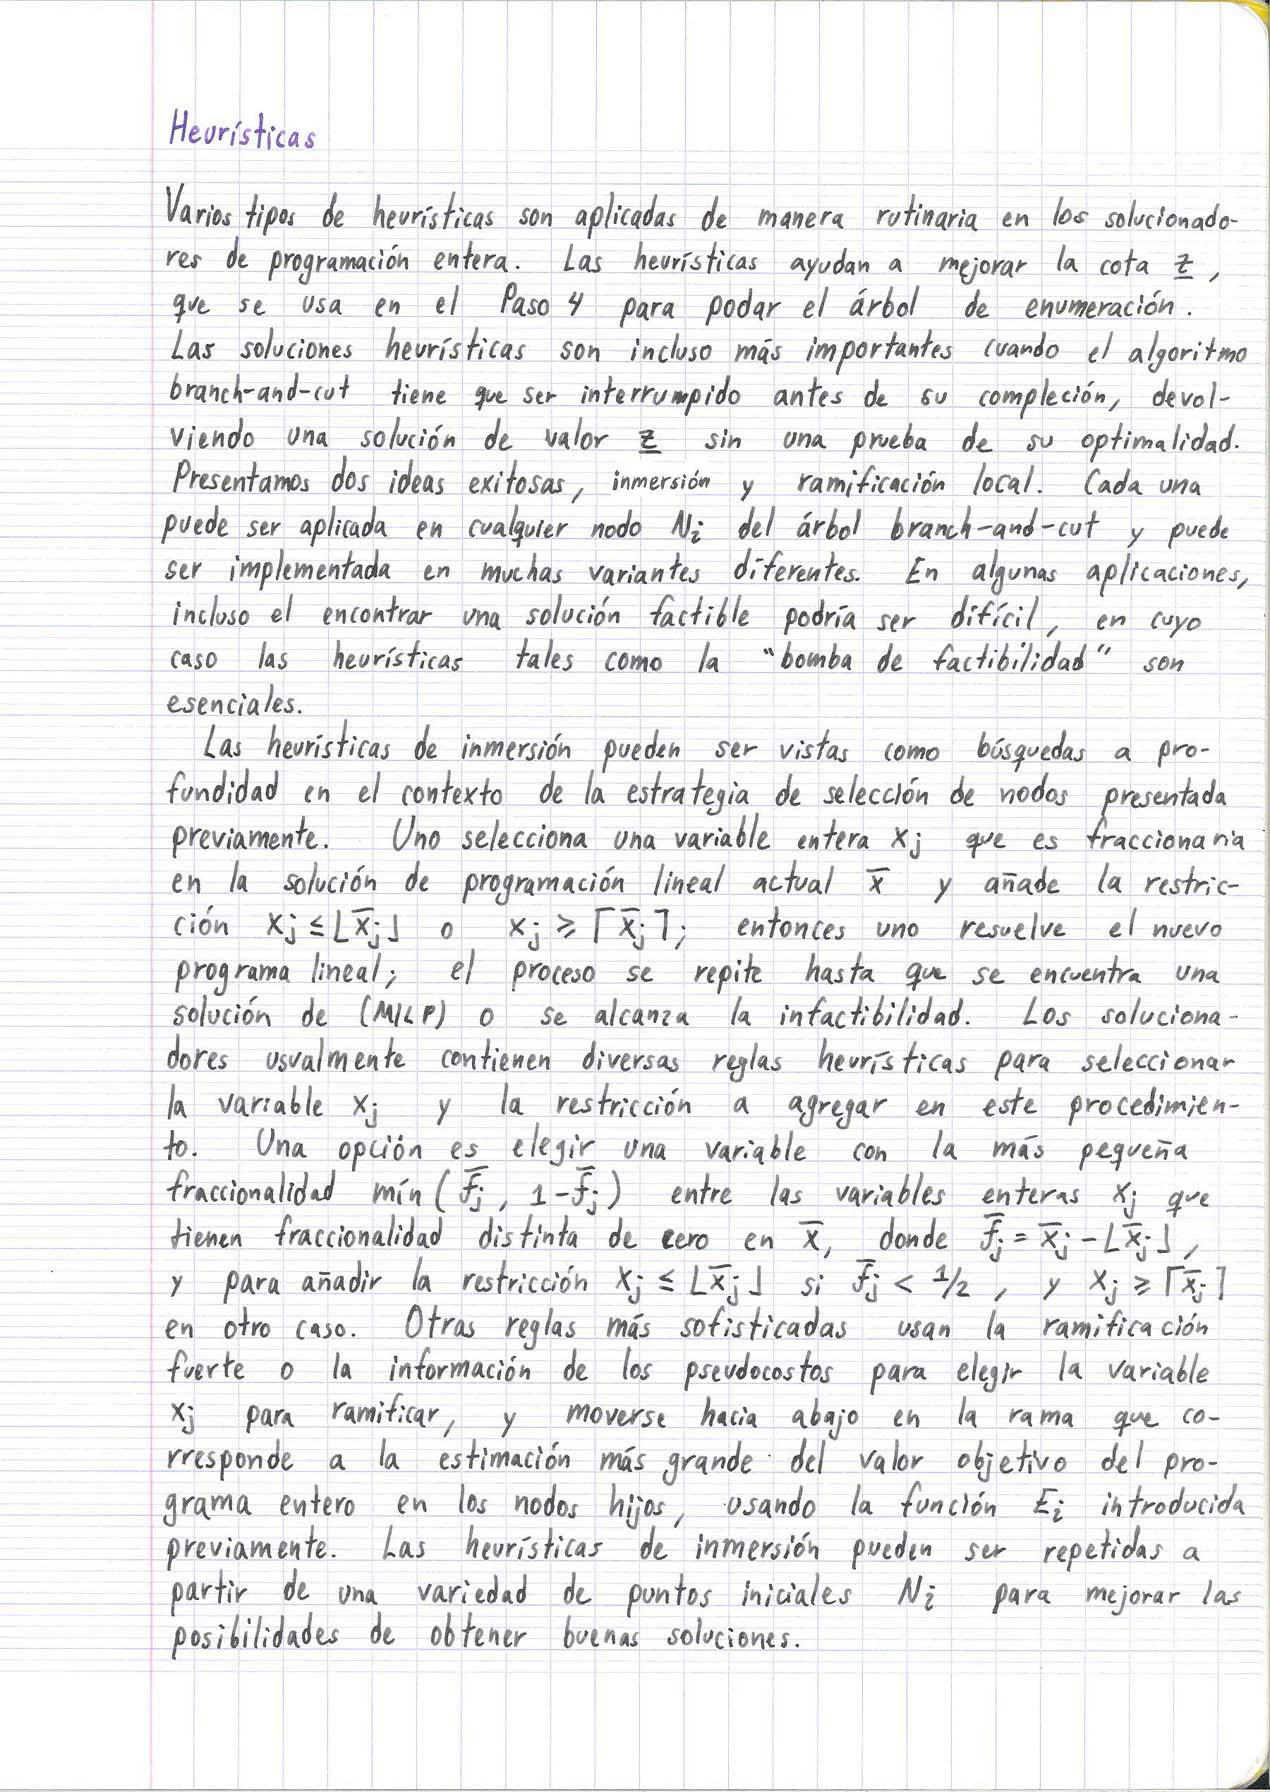 Heurísticas
Varios tipos de heurísticas son aplicadas de manera rutinaria en los solucionado-
res de programación entera. Las heurísticas ayudan a mejorar la cota z̲,
que se usa en el Paso 4 para podar el árbol de enumeración.
Las soluciones heurísticas son incluso más importantes cuando el algoritmo
branch-and-cut tiene que ser interrumpido antes de su compleción, devol-
viendo una solución de valor z̲ sin una prueba de su optimalidad.
Presentamos dos ideas exitosas, inmersión y ramificación local. Cada una
puede ser aplicada en cualquier nodo Nᵢ del árbol branch-and-cut y puede
ser implementada en muchas variantes diferentes. En algunas aplicaciones,
incluso el encontrar una solución factible podría ser difícil, en cuyo
caso las heurísticas tales como la "bomba de factibilidad" son
esenciales.
Las heurísticas de inmersión pueden ser vistas como búsquedas a pro-
fundidad en el contexto de la estrategia de selección de nodos presentada
previamente. Uno selecciona una variable entera xⱼ que es fraccionaria
en la solución de programación lineal actual x̄ y añade la restric-
ción xⱼ ≤ ⌊x̄ⱼ⌋ o xⱼ ≥ ⌈x̄ⱼ⌉; entonces uno resuelve el nuevo
programa lineal; el proceso se repite hasta que se encuentra una
solución de (MILP) o se alcanza la infactibilidad. Los soluciona-
dores usualmente contienen diversas reglas heurísticas para seleccionar
la variable xⱼ y la restricción a agregar en este procedimien-
to. Una opción es elegir una variable con la más pequeña
fraccionalidad mín(f̄ⱼ, 1-f̄ⱼ) entre las variables enteras xⱼ que
tienen fraccionalidad distinta de cero en x̄, donde f̄ⱼ = x̄ⱼ - ⌊x̄ⱼ⌋,
y para añadir la restricción xⱼ ≤ ⌊x̄ⱼ⌋ si f̄ⱼ < 1/2, y xⱼ ≥ ⌈x̄ⱼ⌉
en otro caso. Otras reglas más sofisticadas usan la ramificación
fuerte o la información de los pseudocostos para elegir la variable
xⱼ para ramificar, y moverse hacia abajo en la rama que co-
rresponde a la estimación más grande del valor objetivo del pro-
grama entero en los nodos hijos, usando la función Eᵢ introducida
previamente. Las heurísticas de inmersión pueden ser repetidas a
partir de una variedad de puntos iniciales Nᵢ para mejorar las
posibilidades de obtener buenas soluciones.